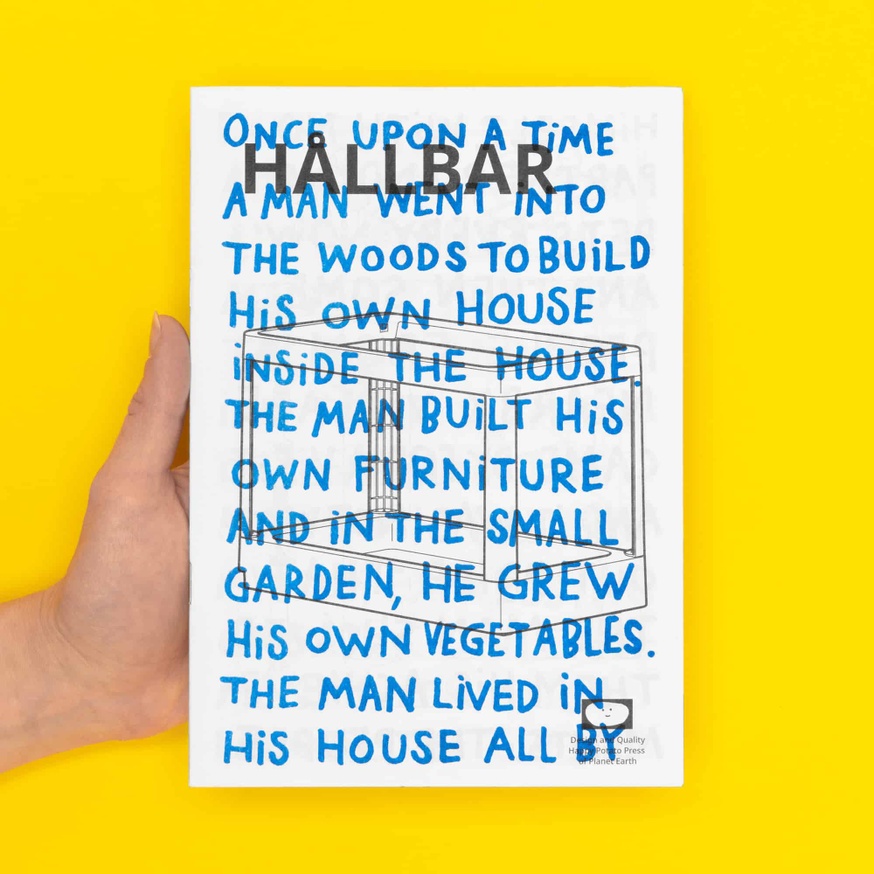 ONCE UPON A TiME
HÅLLBAR
A MAN WENT iNTO
THE WOODS TO BUiLD
HiS OWN HOUSE
iNSiDE THE HOUSE.
THE MAN BUiLT HiS
OWN FURNiTURE
AND iN THE SMALL
GARDEN, HE GREW
HiS OWN VEGETABLES.
THE MAN LiVED iN
HiS HOUSE ALL BY
Design and Quality
Happy Potato Press
of Planet Earth